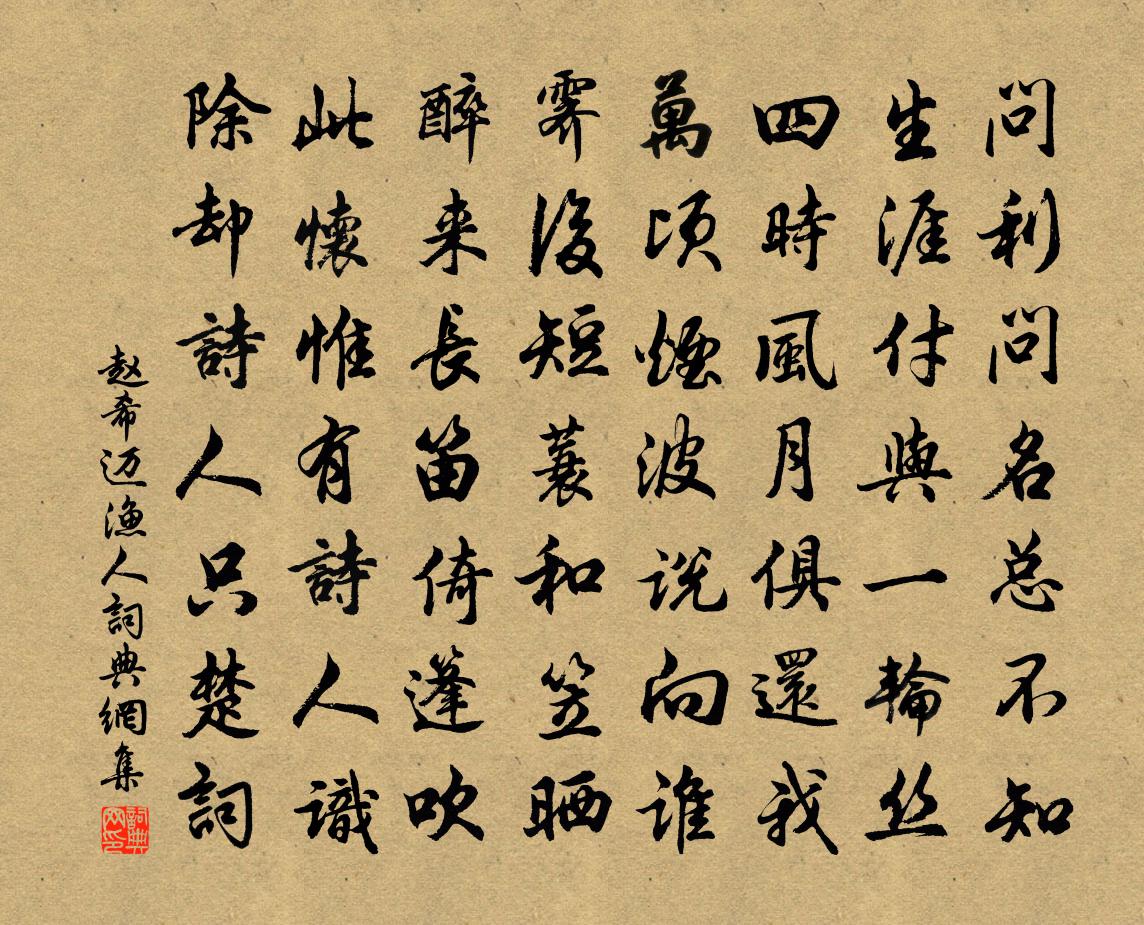 問利問名总不知
生涯付與一輪丝
四時風月俱還我
萬頃煙波説向谁
霁後短蓑和笠晒
醉来長笛倚蓬吹
此懷惟有詩人識
除却詩人只楚詞
赵希迈漁人詞典網集
詞典网印